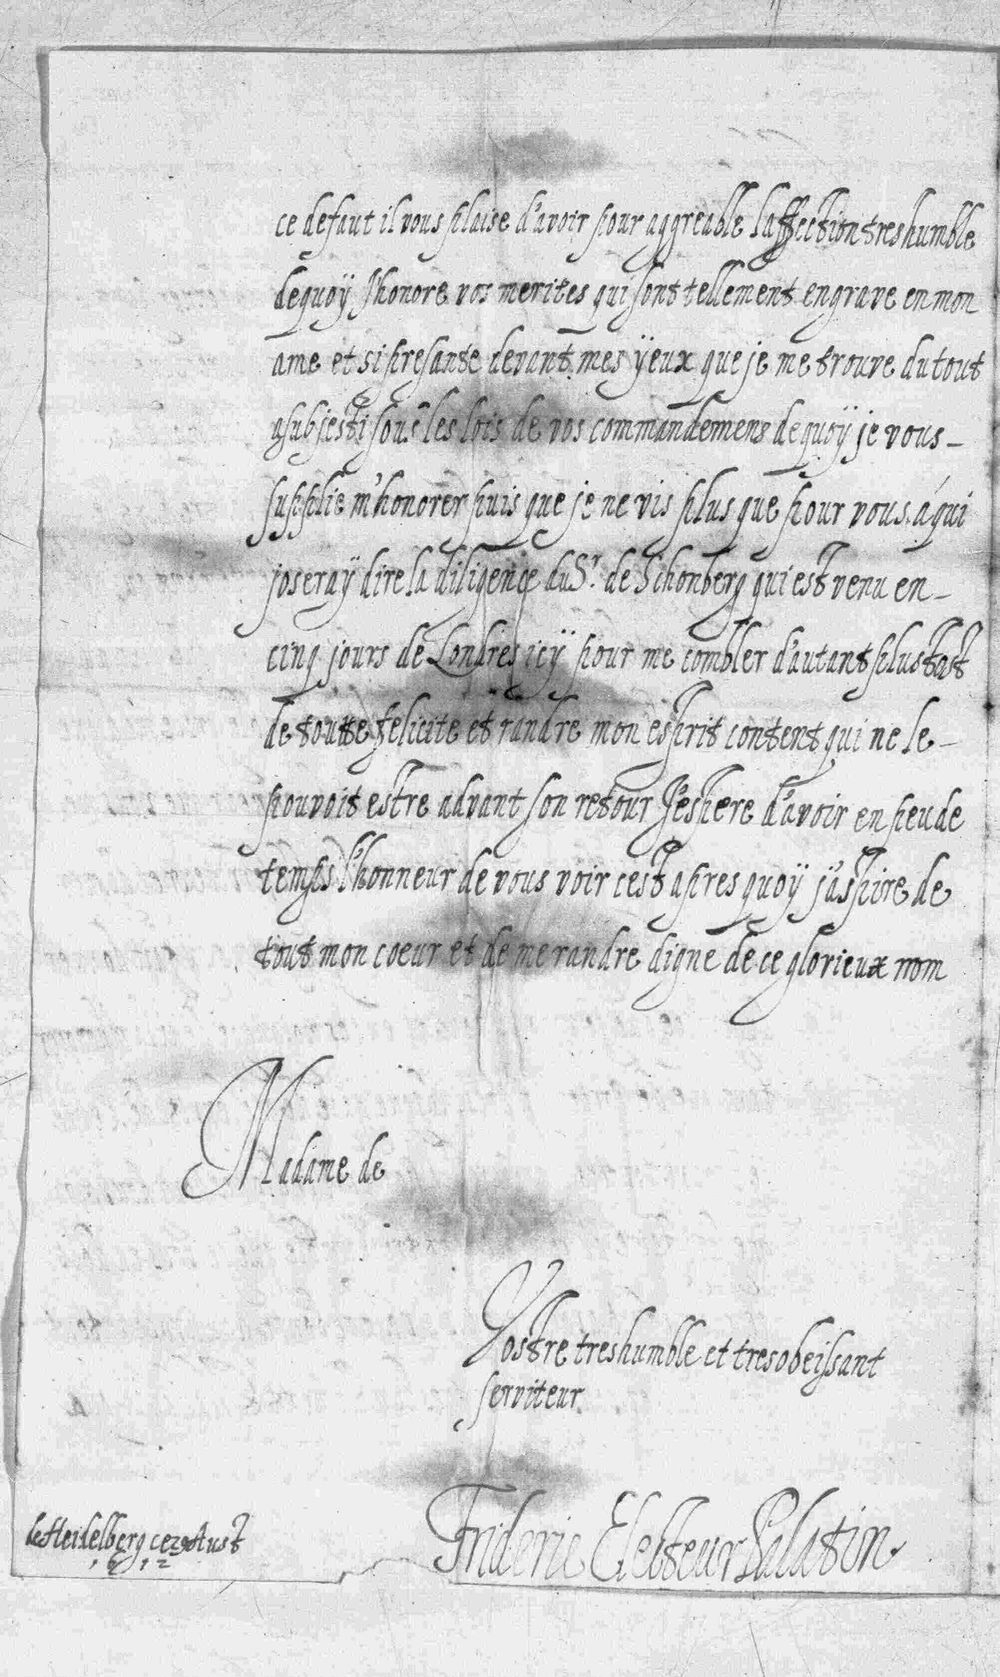 ce defaut il vous plaise d'avoir pour aggreable l'affection treshumble
dequoÿ J'honore vos merites qui sont tellement engrave en mon
ame et si presante devant mes ÿeux que je me trouve du tout
asubjesti sous les lois de vos commandemens dequoÿ je vous
supplie m'honorer puis que je ne vis plus que pour vous. á qui
joseraÿ dire la diligence du Sr. de Schonberg qui est venu en
cinq jours de Londres icÿ pour me combler d'autant plustost
de toutte felicite et randre mon esprit content qui ne le
pouvoit estre advant son retour J'espere d'avoir en peu de
temps l'honneur de vous voir cest apres quoÿ j'aspire de
tout mon coeur et de me randre digne de ce glorieux nom
Madame de
Vostre treshumble et tresobeissant
serviteur
Frideric Electeur Palatin
de Heidelberg ce Aust
1612